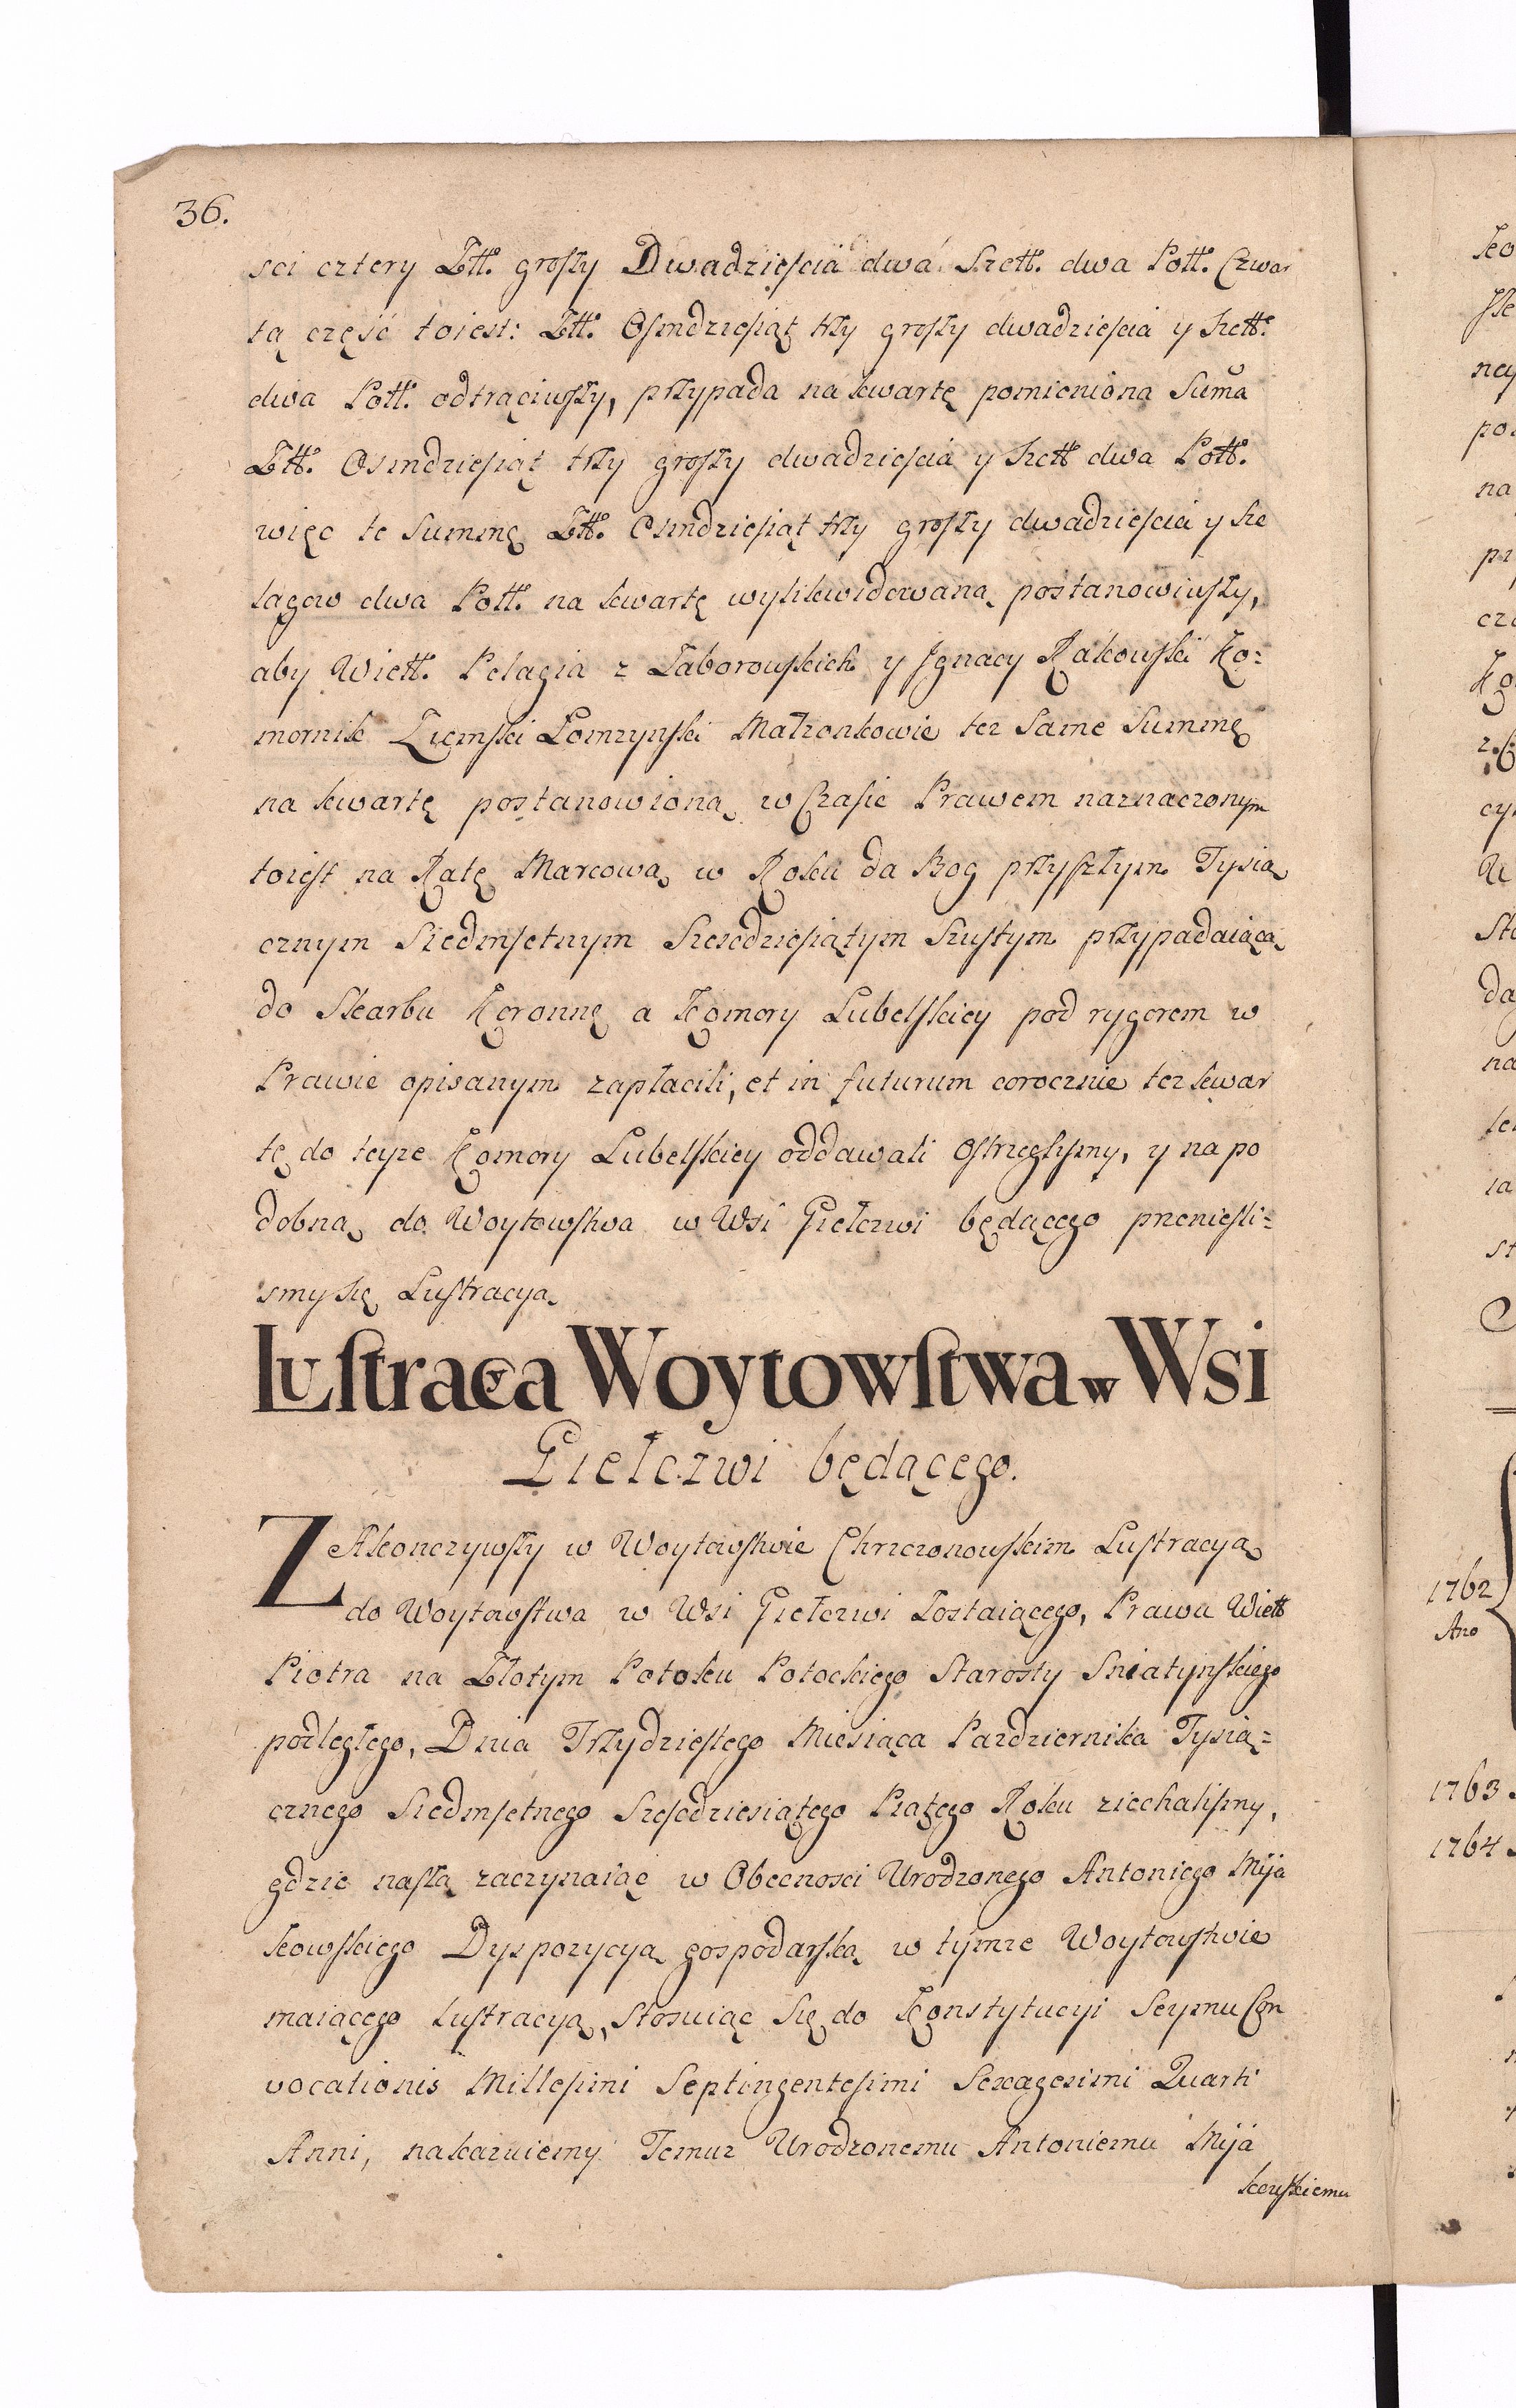 36.
sci cztery Ztt. groſzy Dwadzieſcia dwá Szett. dwa Połł. Czwar
tą część toiest: Ztt. Oſmdzieſiąt trzy groſzy dwadzieſcia y Szett.
dwa Połł. odtrąciwſzy, przypada na kwartę pomieniona Suma
Ztt. Osmdzieſiąt trzy groſzy dwadzieſcia y Szett dwa Połł.
więc te Summę Ztt. Osmdzieſiąt trzy groſzy dwadzieſcia y Sze
lągow dwa Połł. na kwartę wylikwidowaną postanowiwſzy,
aby Wiett. Pelagia z Zaborowſkich y Jgnacy Rakowſki Ko=
mornik Ziemſki Łomzynſki Małzonkowie tez Same Summę
na kwartę postanowioną w Czaſie Prawem naznaczonym
toieſt na Ratę Marcową w Roku da Bog przyſzłym Tysią
cznym Siedmſetnym Szesdzieſiątym Szuſtym przypadaiącą
do Skarbu Koronnę a Komory Lubelſkiey pod rygorem w
Prawie opisanym zapłacili, et in futurum corocznie tez kwar
tę do teyze Komory Lubelſkiey oddawali oſtrzegliſmy, y na po
dobną do Woytowſtwa w Wsi Giełczwi będącego przenieſli=
smy się Luſtracyą
Luſtracya Woytowſtwa w Wsi
Giełczwi będącego.
ZAkonczywſzy w Woytowſtwie Chrzczonowſkim Luſtracyą
do Woytowſtwa w Wsi Giełczwi Zostaiącego, Prawu Wiett
Piotra na Złotym Potoku Potockiego Starosty Sniatynſkiego
podległego, Dnia Trzydzieſtego Miesiąca Pazdziernika Tysią=
cznego Siedmſetnego Szeſedziesiątego Piątego Roku ziechaliſmy,
gdzie naſzą zaczynaiąc w Obecnosci Urodzonego Antoniego Mija
kowſkiego Dyspozycyą gospodarſką w tymze Woytowſtwie
maiącego Luſtracyą, Stosuiąc Się do Konstytucyi Seymu Con
vocationis Milleſimi Septingenteſimi Sexagesimi Quarti
Anni, nakazuiemy Temuz Urodzonemu Antoniemu Mijá
kowſkiemu
1762
Ano
1763
1764